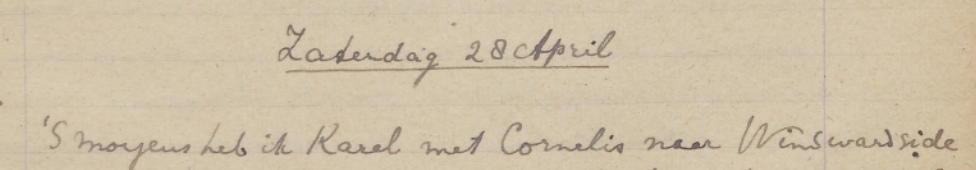 Zaterdag 28 April
'S morgens heb ik Karel met Cornelis naar Windwardside